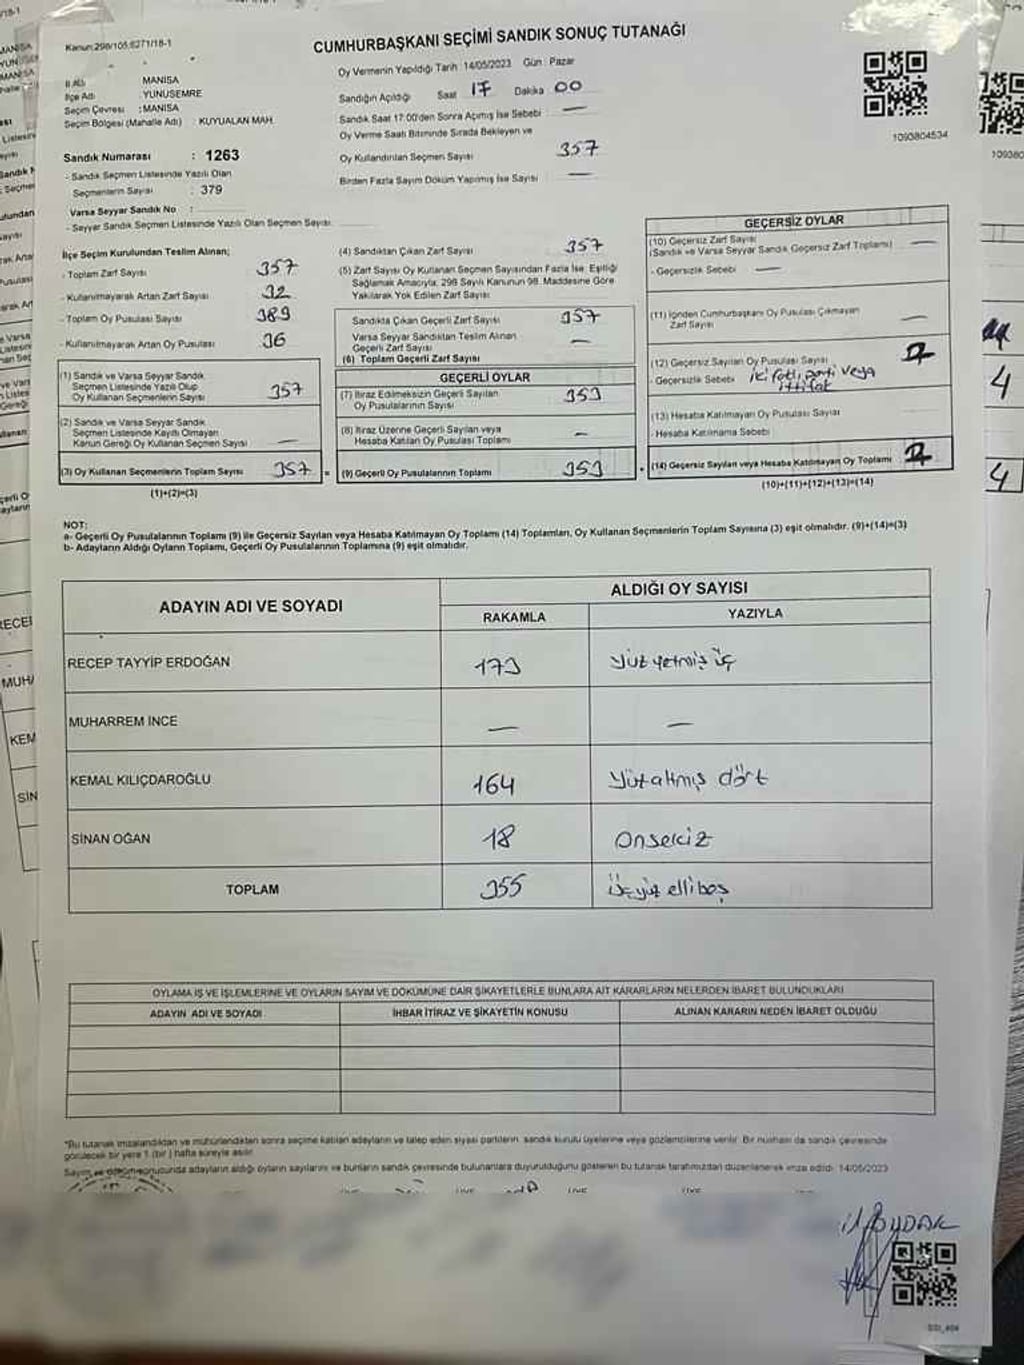 Kanun:298/105,6271/18-1
CUMHURBAŞKANI SEÇİMİ SANDIK SONUÇ TUTANAĞI
İl Adı : MANİSA
İlçe Adı : YUNUSEMRE
Seçim Çevresi : MANİSA
Seçim Bölgesi (Mahalle Adı) : KUYUALAN MAH.
Sandık Numarası : 1263
- Sandık Seçmen Listesinde Yazılı Olan
Seçmenlerin Sayısı : 379
Varsa Seyyar Sandık No :
- Seyyar Sandık Seçmen Listesinde Yazılı Olan Seçmen Sayısı
Oy Vermenin Yapıldığı Tarih :14/05/2023 Gün : Pazar
Sandığın Açıldığı Saat 17 Dakika 00
Sandık Saat 17:00'den Sonra Açılmış İse Sebebi : —
Oy Verme Saati Bitiminde Sırada Bekleyen ve
Oy Kullandırılan Seçmen Sayısı 357
Birden Fazla Sayım Döküm Yapılmış İse Sayısı —
1093804534
İlçe Seçim Kurulundan Teslim Alınan;
- Toplam Zarf Sayısı 357
- Kullanılmayarak Artan Zarf Sayısı 32
- Toplam Oy Pusulası Sayısı 389
- Kullanılmayarak Artan Oy Pusulası 36
(1) Sandık ve Varsa Seyyar Sandık
Seçmen Listesinde Yazılı Olup
Oy Kullanan Seçmenlerin Sayısı 357
(2) Sandık ve Varsa Seyyar Sandık
Seçmen Listesinde Kaydı Olmayan
Kanun Gereği Oy Kullanan Seçmen Sayısı —
(3) Oy Kullanan Seçmenlerin Toplam Sayısı 357 =
(1)+(2)=(3)
(4) Sandıktan Çıkan Zarf Sayısı 357
(5) Zarf Sayısı Oy Kullanan Seçmen Sayısından Fazla İse, Eşitliği
Sağlamak Amacıyla, 298 Sayılı Kanunun 98. Maddesine Göre
Yakılarak Yok Edilen Zarf Sayısı
Sandıkta Çıkan Geçerli Zarf Sayısı 357
Varsa Seyyar Sandıktan Teslim Alınan
Geçerli Zarf Sayısı —
(6) Toplam Geçerli Zarf Sayısı
GEÇERLİ OYLAR
(7) İtiraz Edilmeksizin Geçerli Sayılan
Oy Pusulalarının Sayısı 353
(8) İtiraz Üzerine Geçerli Sayılan veya
Hesaba Katılan Oy Pusulası Toplamı —
(9) Geçerli Oy Pusulalarının Toplamı 353 +
GEÇERSİZ OYLAR
(10) Geçersiz Zarf Sayısı
(Sandık ve Varsa Seyyar Sandık Geçersiz Zarf Toplamı) —
- Geçersizlik Sebebi —
(11) İçinden Cumhurbaşkanı Oy Pusulası Çıkmayan
Zarf Sayısı —
(12) Geçersiz Sayılan Oy Pusulası Sayısı
- Geçersizlik Sebebi iki farklı parti veya
ittifak
(13) Hesaba Katılmayan Oy Pusulası Sayısı
- Hesaba Katılmama Sebebi
(14) Geçersiz Sayılan veya Hesaba Katılmayan Oy Toplamı
(10)+(11)+(12)+(13)=(14)
NOT:
a- Geçerli Oy Pusulalarının Toplamı (9) ile Geçersiz Sayılan veya Hesaba Katılmayan Oy Toplamı (14) Toplamları, Oy Kullanan Seçmenlerin Toplam Sayısına (3) eşit olmalıdır. (9)+(14)=(3)
b- Adayların Aldığı Oyların Toplamı, Geçerli Oy Pusulalarının Toplamına (9) eşit olmalıdır.
ADAYIN ADI VE SOYADI
ALDIĞI OY SAYISI
RAKAMLA YAZIYLA
RECEP TAYYİP ERDOĞAN 173 yüz yetmiş üç
MUHARREM İNCE — —
KEMAL KILIÇDAROĞLU 164 yüz altmış dört
SİNAN OĞAN 18 onsekiz
TOPLAM 355 üçyüz ellibeş
OYLAMA İŞ VE İŞLEMLERİNE VE OYLARIN SAYIM VE DÖKÜMÜNE DAİR ŞİKAYETLERLE BUNLARA AİT KARARLARIN NELERDEN İBARET BULUNDUKLARI
ADAYIN ADI VE SOYADI İHBAR İTİRAZ VE ŞİKAYETİN KONUSU ALINAN KARARIN NEDEN İBARET OLDUĞU
*Bu tutanak imzalandıktan ve mühürlendikten sonra seçime katılan adayların ve talep eden siyasi partilerin, sandık kurulu üyelerine veya gözlemcilerine verilir. Bir nüshası da sandık çevresinde
görülecek bir yere 1 (bir) hafta süreyle asılır.
Sayım ve döküm sonucunda adayların aldığı oyların sayılarını ve bunların sandık çevresinde bulunanlara duyurulduğunu gösteren bu tutanak tarafımızdan düzenlenerek imza edildi. 14/05/2023